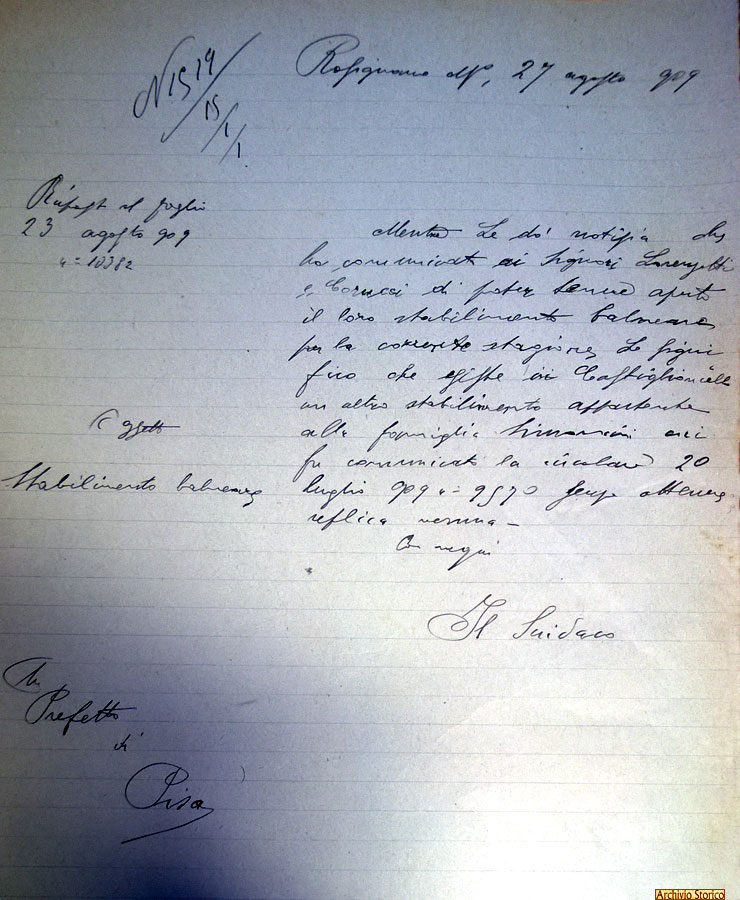 N 1519
15/1/1
Rosignano Mmo, 27 agosto 909
Rispost al foglio
23 agosto 909
n = 10382
Oggetto
Stabilimento balneare
Mentre Le do' notizia che
ho comunicato ai Signori Lorenzetti
e Corucci di poter tenere aperto
il loro stabilimento balneare
per la corrente stagione, Le signi
fico che esiste in Castiglioncello
un altro stabilimento appartenente
alla famiglia cui
fu comunicata la circolare 20
luglio 909 n = 9570 senza ottenere
replica nessuna –
Con
Il Sindaco
Prefetto
di
Pisa
Archivio Storico